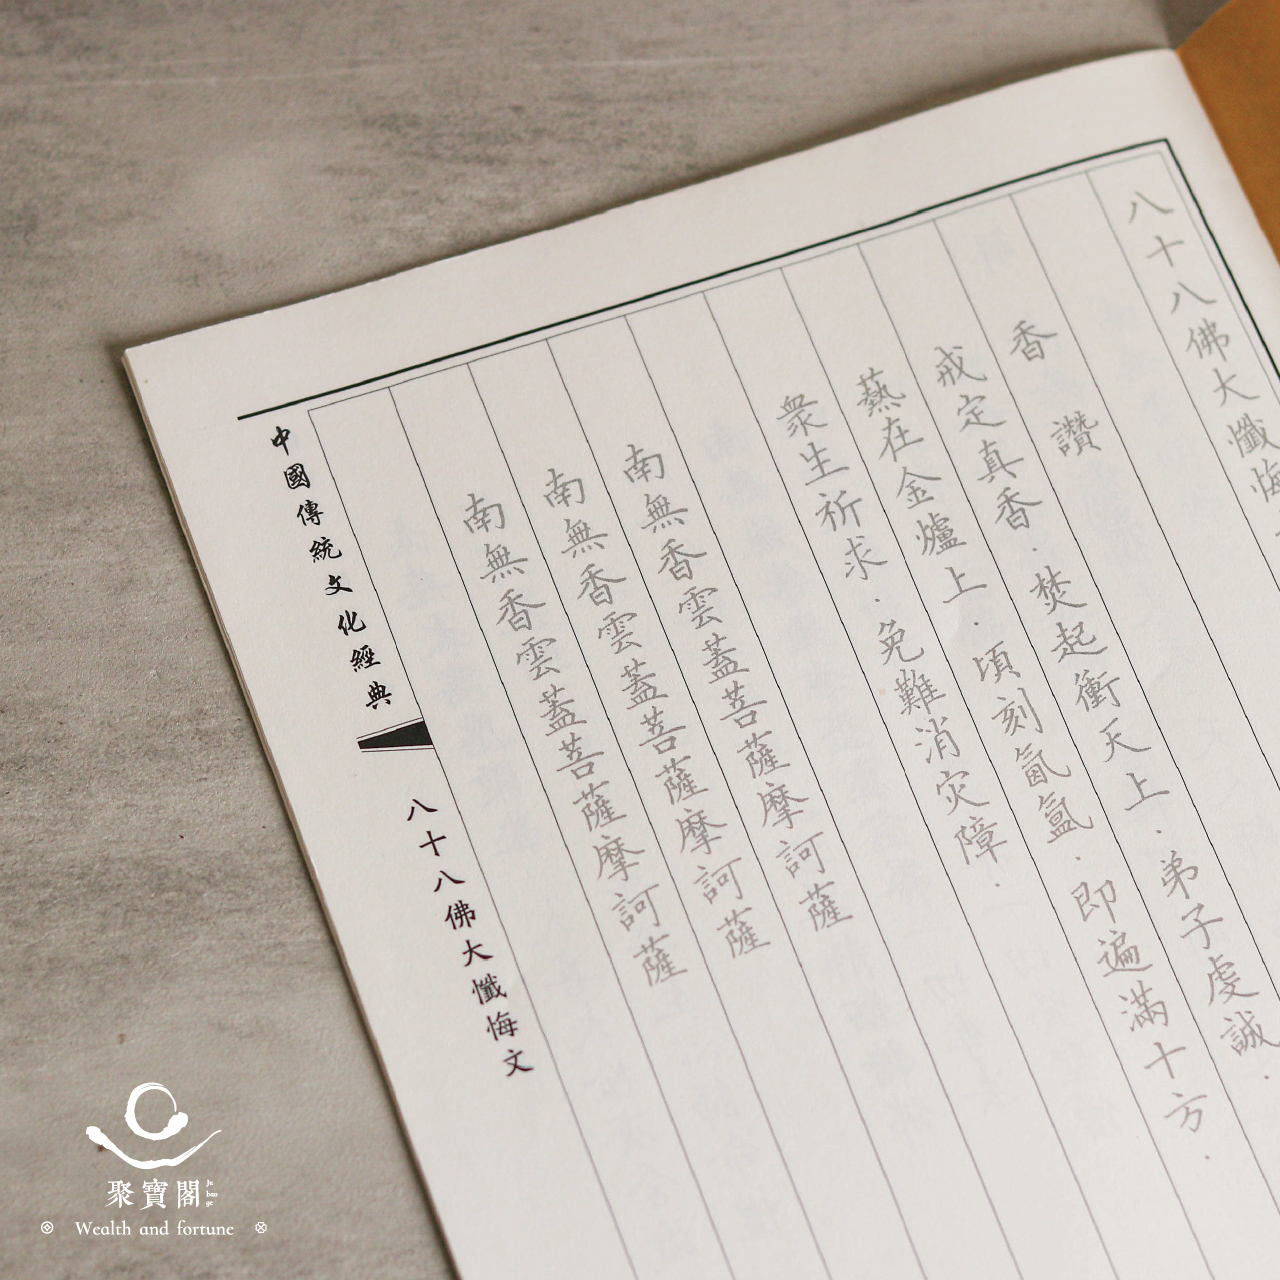 八十八佛大懺悔
香讚
戒定真香．焚起衝天上．弟子虔誠．
爇在金爐上．頃刻氤氳．即遍滿十方．
衆生祈求．免難消灾障．
南無香雲蓋菩薩摩訶薩
南無香雲蓋菩薩摩訶薩
南無香雲蓋菩薩摩訶薩
中國傳統文化經典
八十八佛大懺悔文
聚寶閣
Ju bao ge
Wealth and fortune